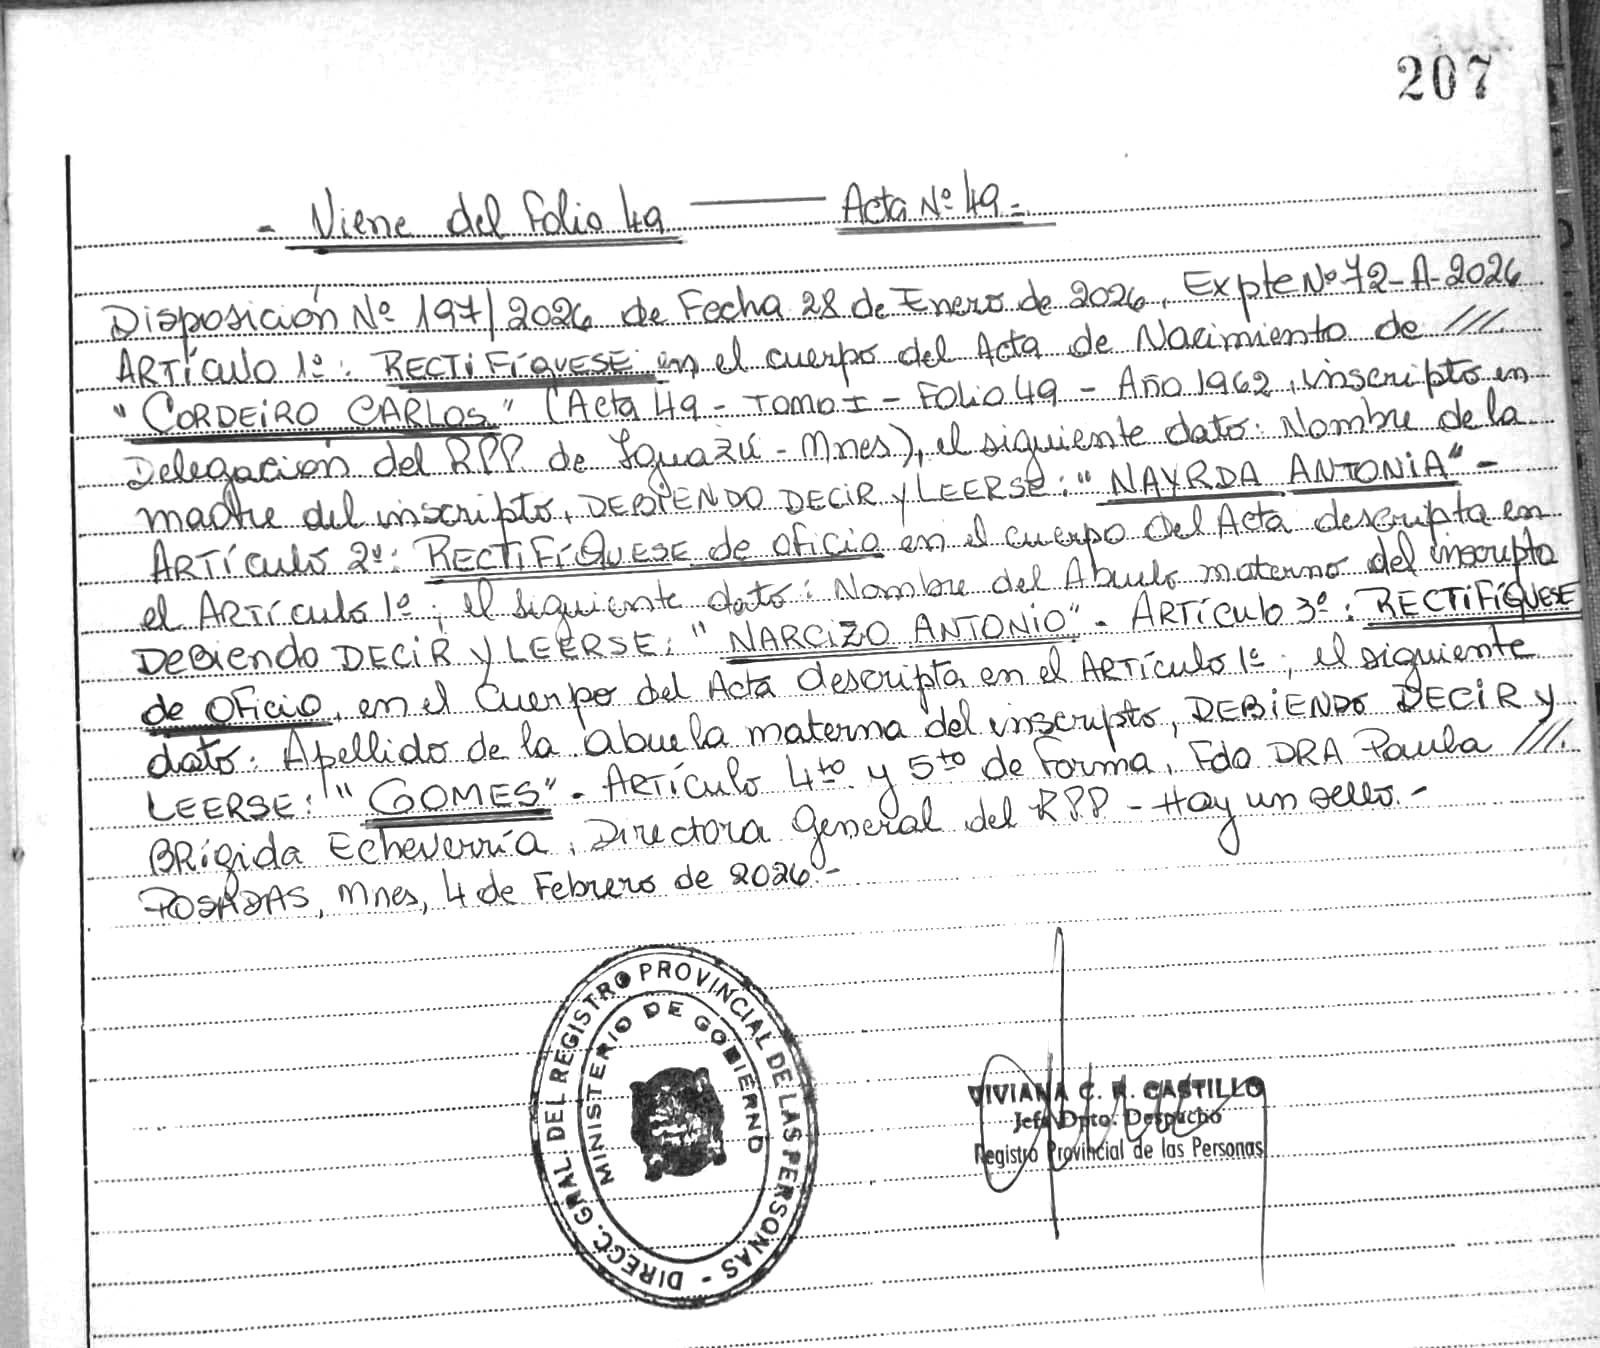 207
- Viene del Folio 49 ——— Acta Nº 49 -
Disposición Nº 197/2026 de Fecha 28 de Enero de 2026, Expte Nº 72-A-2026
ARTículo 1º: RECTIFÍQUESE en el cuerpo del Acta de Nacimiento de ///
"CORDEIRO CARLOS" (Acta 49 - TOMO I - Folio 49 - Año 1962, inscripto en
Delegación del RPP. de Iguazú - Mnes), el siguiente dato: Nombre de la
madre del inscripto, DEBIENDO DECIR y LEERSE: "NAYRDA ANTONIA" -
ARTículo 2º: RECTIFÍQUESE de oficio en el cuerpo del Acta descripta en
el ARTículo 1º, el siguiente dato: Nombre del Abuelo materno del inscripto
DEBiendo DECIR y LEERSE: "NARCIZO ANTONIO" - ARTículo 3º: RECTIFÍQUESE
de oficio, en el Cuerpo del Acta descripta en el ARTículo 1º, el siguiente
dato: Apellido de la abuela materna del inscripto, DEBIENDO DECIR y
LEERSE: "GOMES" - ARTículo 4to y 5to de Forma, Fdo DRA Paula ///
BRígida Echeverría, Directora General del RPP - Hay un sello. -
POSADAS, Mnes, 4 de Febrero de 2026.-
DIRECC. GRAL. DEL REGISTRO PROVINCIAL DE LAS PERSONAS -
MINISTERIO DE GOBIERNO
VIVIANA C. R. CASTILLO
Jefe Dpto. Despacho
Registro Provincial de las Personas